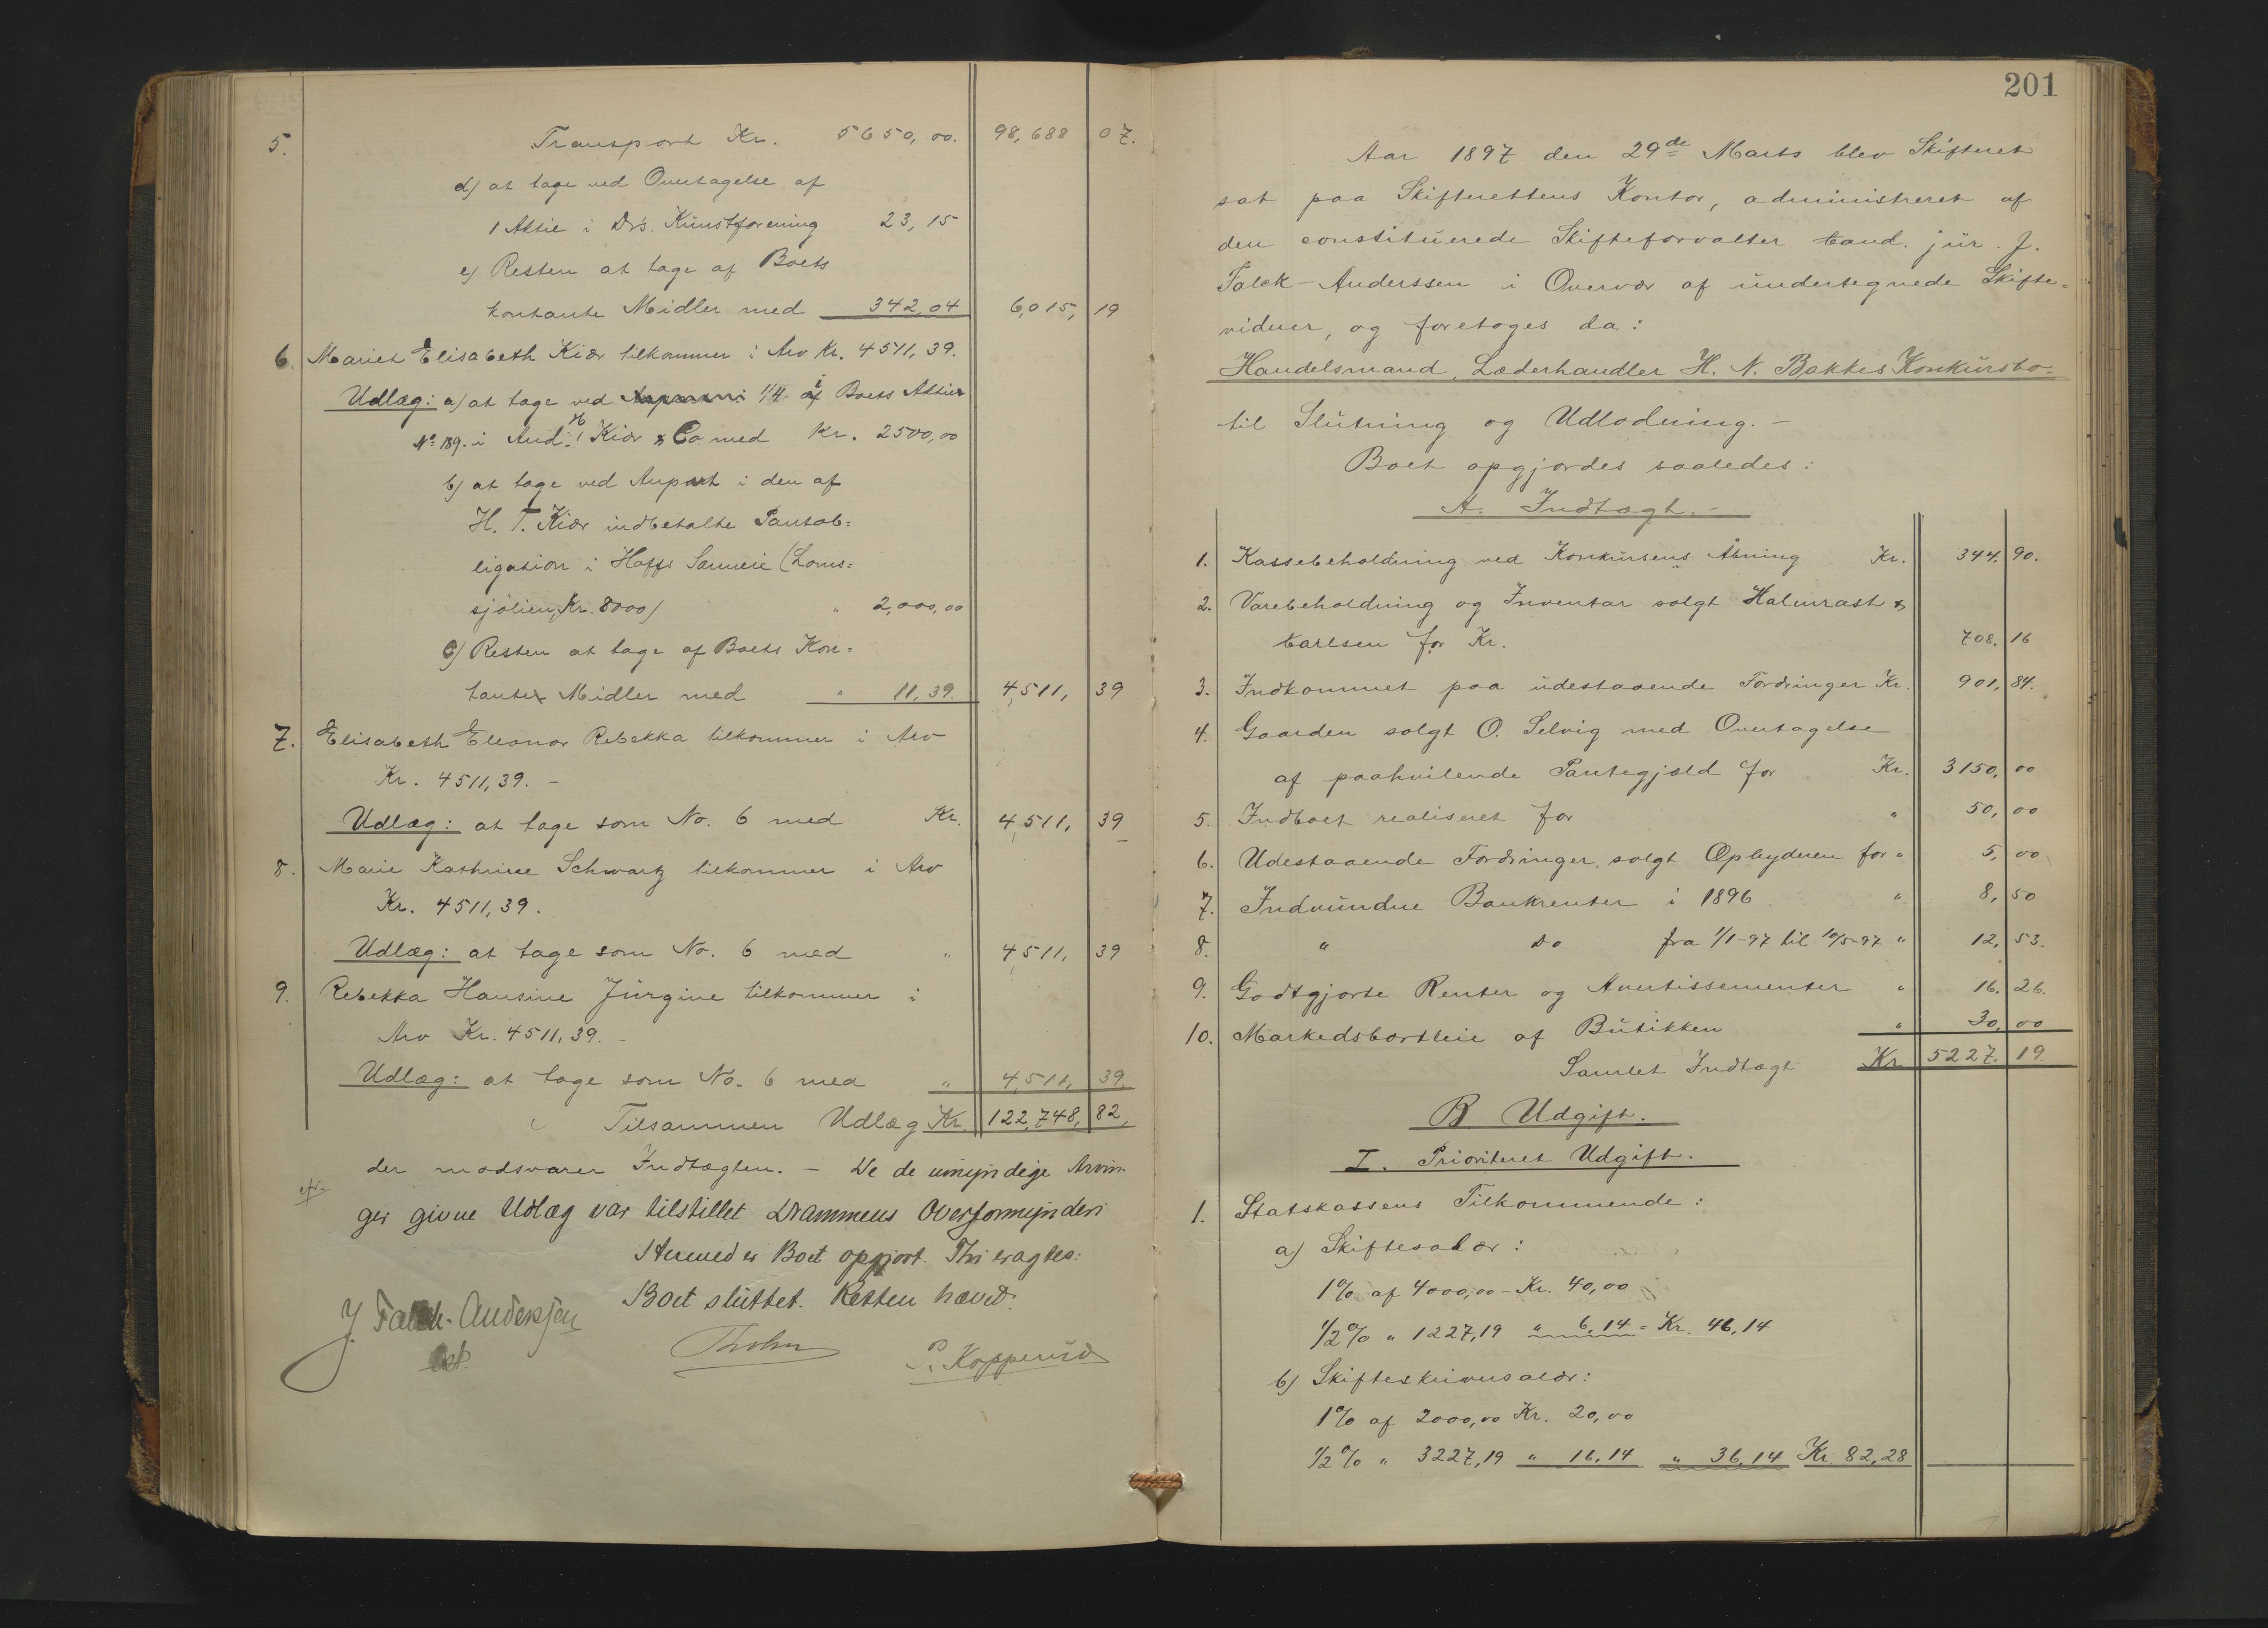 5. Transport Kr. 5650,00. 98,688 07.
d) at tage ved Overtagelse af
1 Aktie i Drs. Kunstforening 23,15
e) Resten at tage af Boets
kontante Midler med 342,04 6,015, 19
6. Mariet Elisabeth Kiær tilkommer i Arv Kr. 4511,39.
Udlæg: a) at tage ved 1/4 i Boets Aktier
No 189. i And. H. Kiær & Co med Kr. 2500,00
b) at tage ved Anpart i den af
H. T. Kiær indbetalte Pantob=
ligation i Hoffs Sameie (Loms=
sjølien, Kr. 8000) " 2,000,00
c) Resten at tage af Boets Kon=
tanter Midler med " 11,39. 4,511, 39
7. Elisabeth Eleonor Rebekka tilkommer i Arv
Kr. 4511,39. -
Udlæg: at tage som No. 6 med Kr. 4,511, 39
8. Marie Kathrine Schwartz tilkommer i Arv
Kr. 4511,39.
Udlæg: at tage som No. 6 med " 4511, 39
9. Rebekka Hansine Jürgine tilkommer i
Arv Kr. 4511,39. -
Udlæg: at tage som No. 6 med " 4,511, 39.
Tilsammen Udlæg Kr. 122,748, 82,
der modsvarer Indtægten. - De de umyndige Arvin-
ger givne Udlæg var tilstillet Drammens Overformynderi
Hermed er Boet opgjort. Thi eragtes:
Boet sluttet. Retten hævet.
J Falck-Anderssen
cst.
P. Kopperud
201
Aar 1897 den 29de Marts blev Skifteret
sat paa Skifterettens Kontor, administreret af
den constituerede Skifteforvalter Cand. jur. J.
Falck-Anderssen i Overvær af undertegnede Skifte=
vidner, og foretoges da:
Handelsmand, Læderhandler H. N. Bakkes Konkursbo
til Slutning og Udlodning. -
Boet opgjordes saaledes:
A. Indtægt. -
1. Kassebeholdning ved Konkursens Åbning Kr. 344. 90.
2. Varebeholdning og Inventar solgt Halmrast &
Carlsen for Kr. 708. 16
3. Indkommet paa udestaaende Fordringer Kr. 901, 84.
4. Gaarden solgt O. Selvig med Overtagelse
af paahvilende Pantegjæld for Kr. 3150, 00
5. Indboet realiseret for " 50, 00
6. Udestaaende Fordringer solgt Opbyderen for " 5, 00
7. Indvundne Bankrenter i 1896 " 8, 50
8. " Do fra 1/1-97 til 10/5-97 " 12, 53.
9. Godtgjorte Renter og Avertissementer " 16. 26.
10. Markedsbortleie af Butikken " 30, 00
Samlet Indtægt Kr. 5227. 19
B Udgift.
I. Prioriteret Udgift.
1. Statskassens Tilkommende:
a) Skiftesalær:
1% af 4000,00 - Kr. 40,00
1/2% " 1227,19 " 6,14 = Kr. 46,14
b) Skifteskriversalær:
1% af 2000,00 Kr. 20,00
1/2% " 3227,19 " 16,14 " 36,14 Kr. 82,28